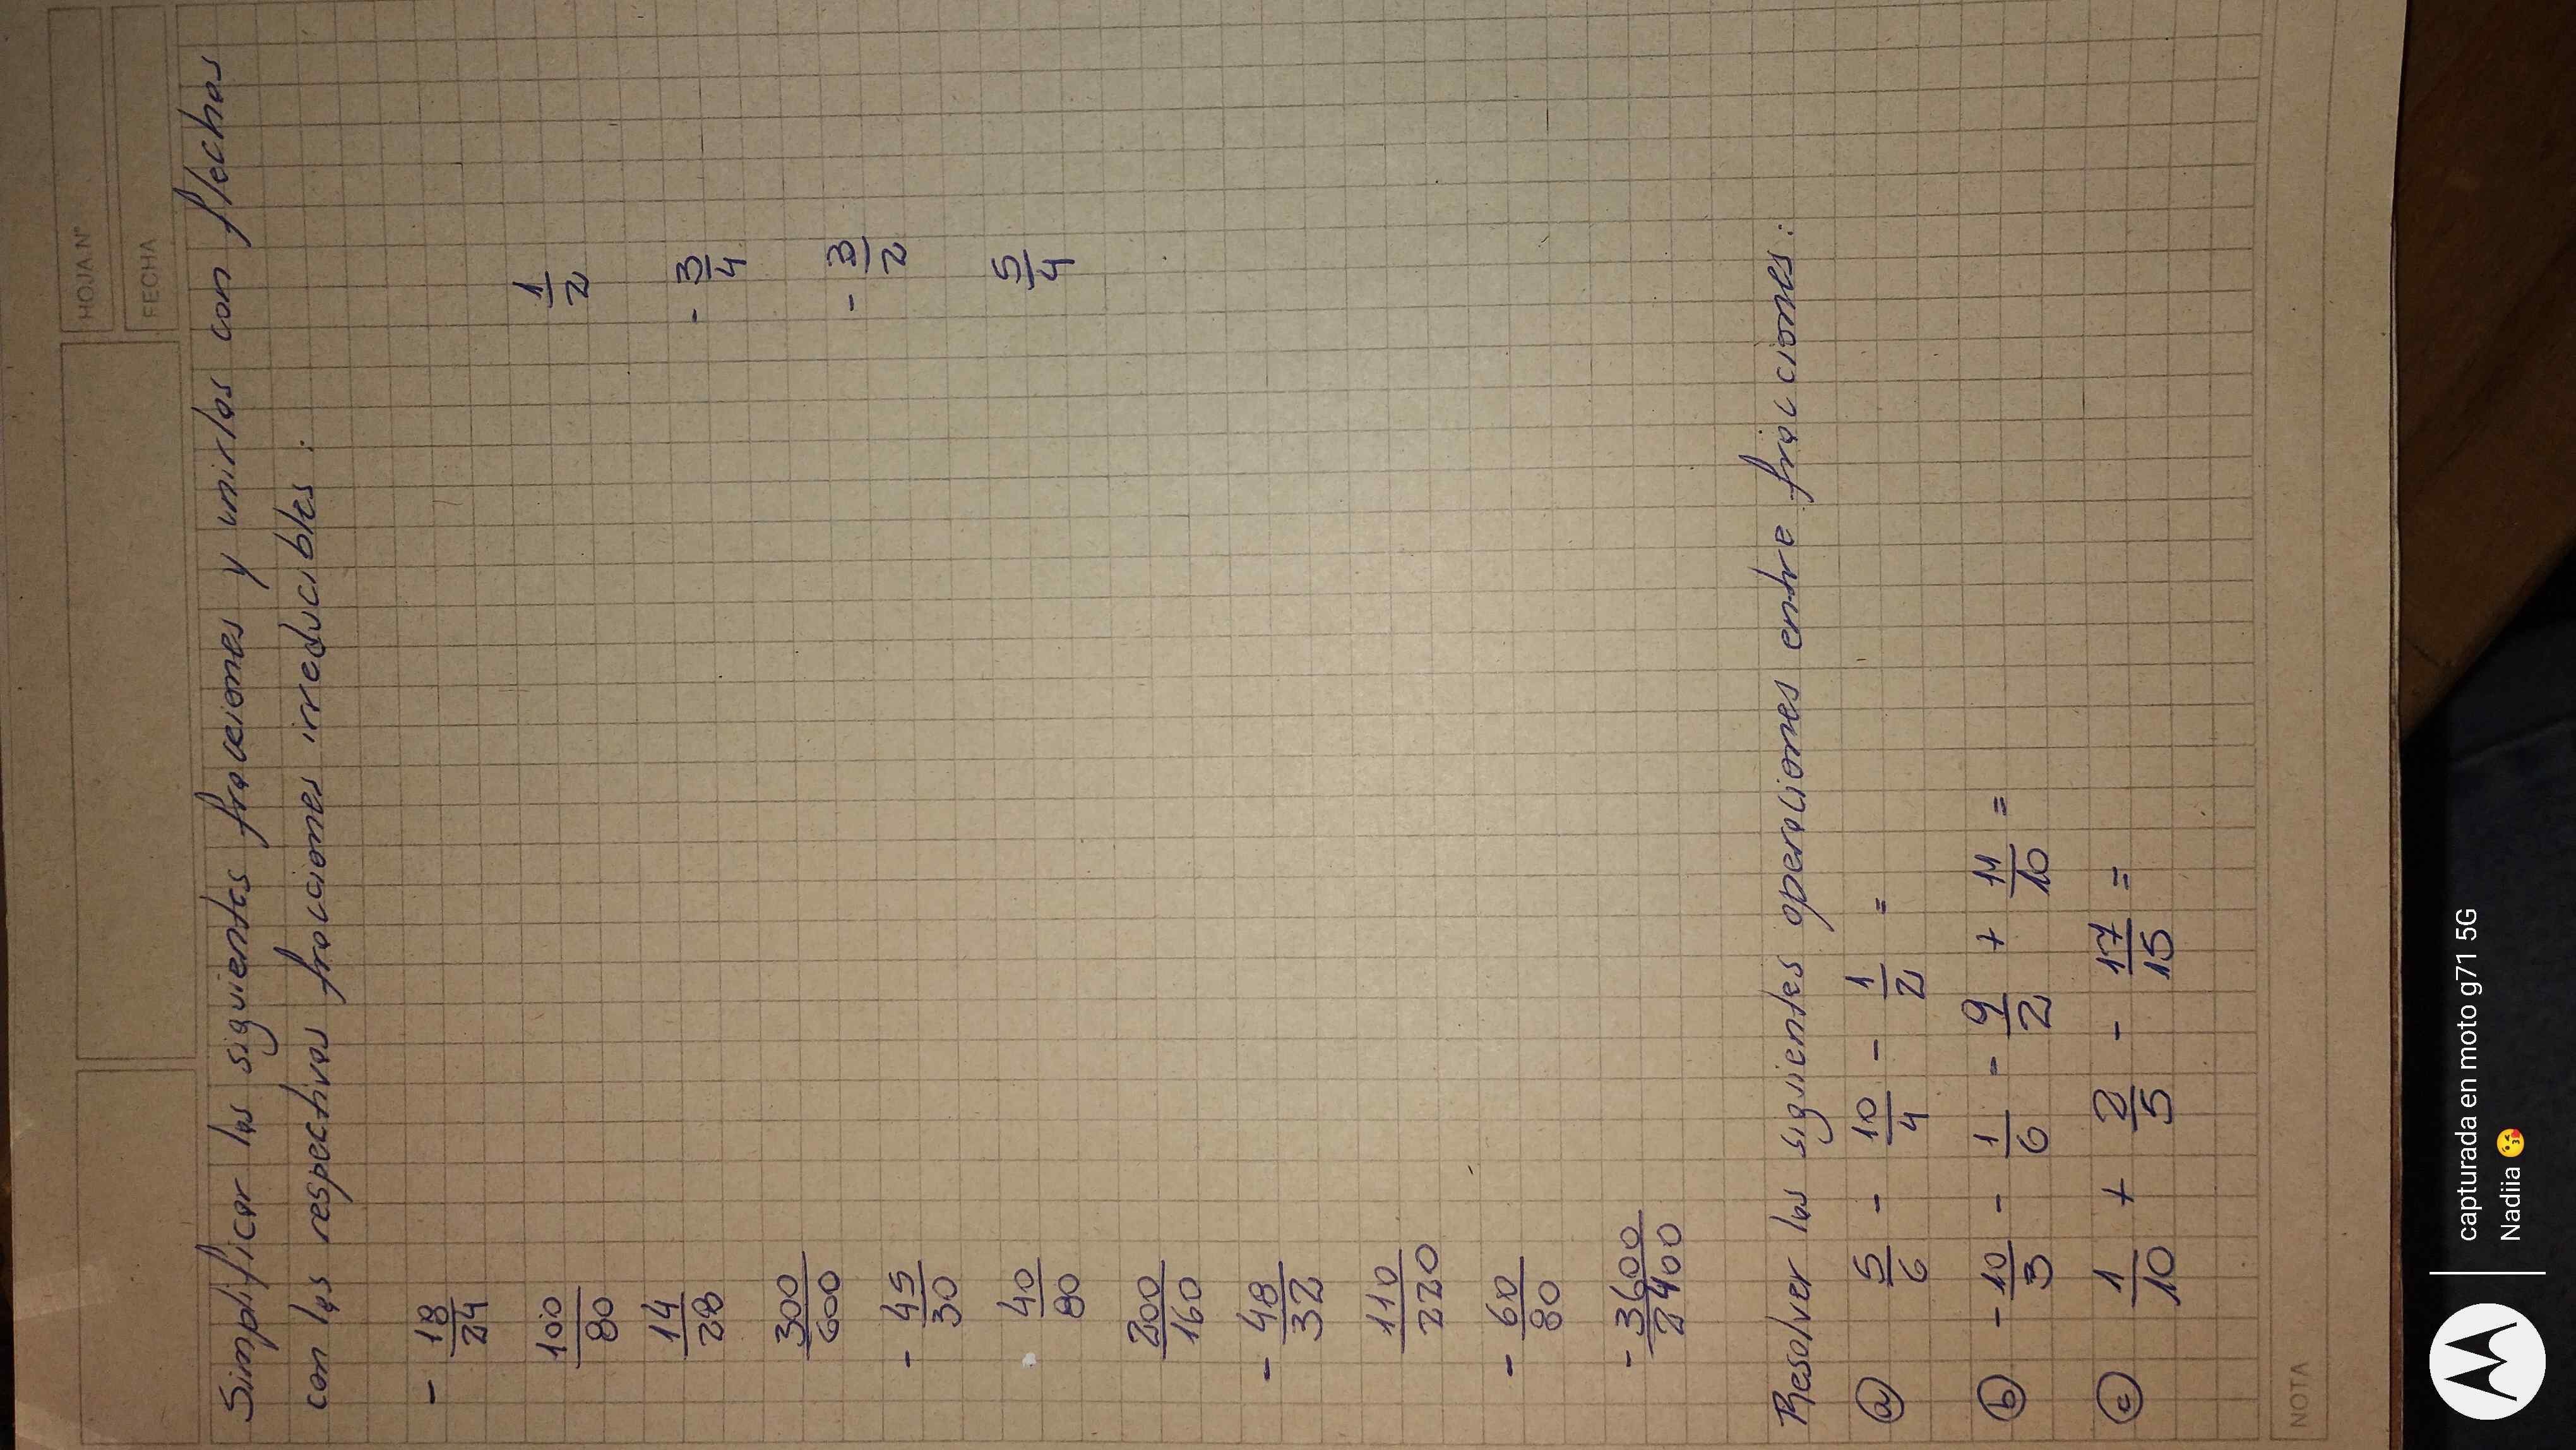 HOJA N°
FECHA
Simplificar las siguientes fracciones y unirlas con flechas
con las respectivas fracciones irreducibles:
- 18/24
100/80
1/2
14/28
- 3/4
300/600
- 3/2
- 45/30
5/4
40/80
200/160
- 48/32
110/220
- 60/80
- 3600/2400
Resolver las siguientes operaciones entre fracciones:
a) 5/6 - 10/4 - 1/2 =
b) - 10/3 - 1/6 - 9/2 + 11/10 =
c) 1/10 + 2/5 - 17/15 =
NOTA
capturada en moto g71 5G
Nadiia 😘